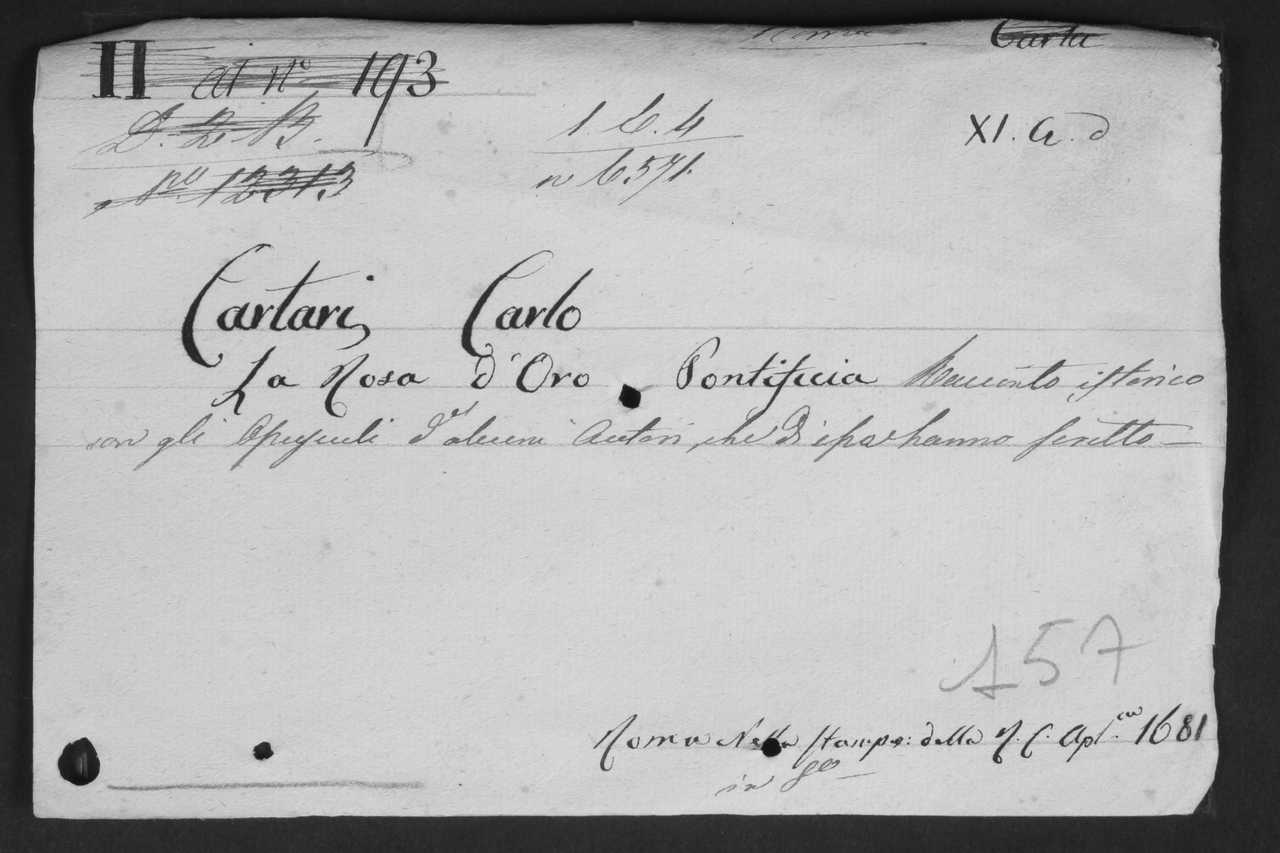 Carta
II al nº 193
XI. a. d
1. 6. 4
nº 12313
n 6571.
Cartari, Carlo
La Rosa d'Oro Pontificia Racconto istorico
con gli Opuscoli d'alcuni Autori, che di essa hanno scritto
157
Roma Nella Stamp: della R. C. Apl.ca 1681
in 8º